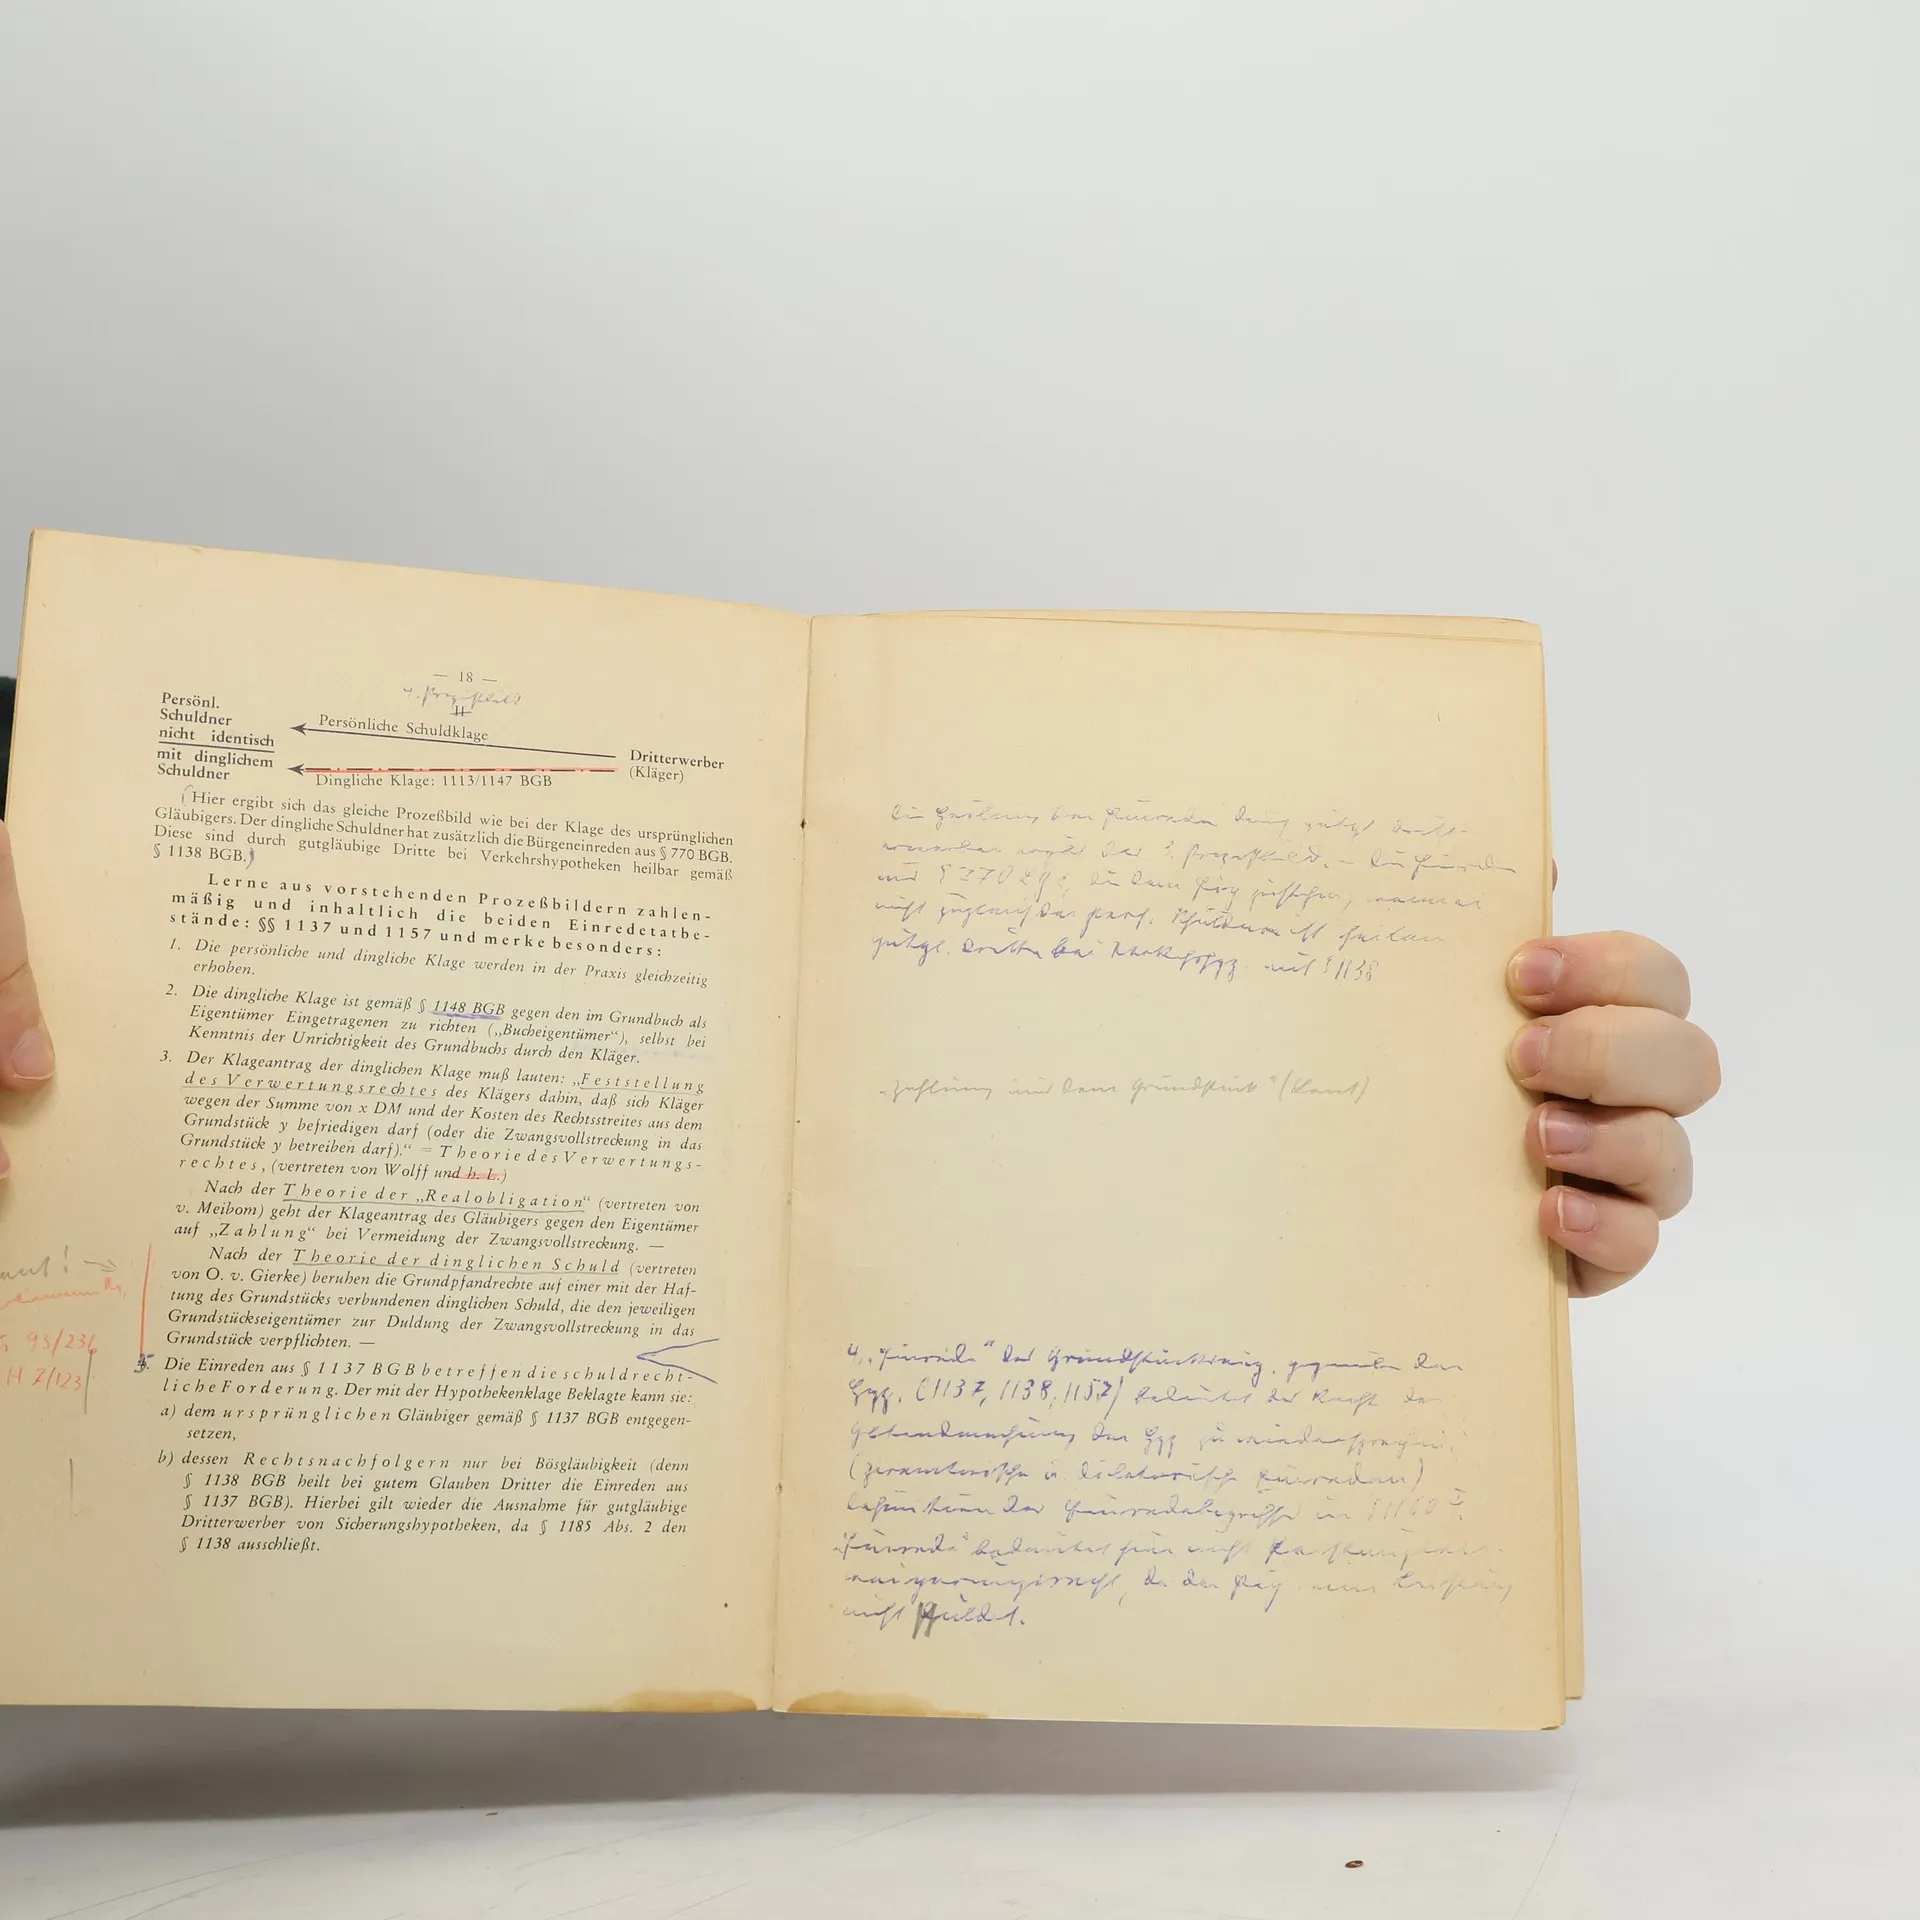 — 18 —
4. Prozeßbild
II
Persönl.
Schuldner
nicht identisch
mit dinglichem
Schuldner
Persönliche Schuldklage
Dingliche Klage: 1113/1147 BGB
Dritterwerber
(Kläger)
(Hier ergibt sich das gleiche Prozeßbild wie bei der Klage des ursprünglichen
Gläubigers. Der dingliche Schuldner hat zusätzlich die Bürgeneinreden aus § 770 BGB.
Diese sind durch gutgläubige Dritte bei Verkehrshypotheken heilbar gemäß
§ 1138 BGB.)
Lerne aus vorstehenden Prozeßbildern zahlen-
mäßig und inhaltlich die beiden Einredetatbe-
stände: §§ 1137 und 1157 und merke besonders:
1. Die persönliche und dingliche Klage werden in der Praxis gleichzeitig
erhoben.
2. Die dingliche Klage ist gemäß § 1148 BGB gegen den im Grundbuch als
Eigentümer Eingetragenen zu richten („Bucheigentümer“), selbst bei
Kenntnis der Unrichtigkeit des Grundbuchs durch den Kläger.
3. Der Klageantrag der dinglichen Klage muß lauten: „Feststellung
des Verwertungsrechtes des Klägers dahin, daß sich Kläger
wegen der Summe von x DM und der Kosten des Rechtsstreites aus dem
Grundstück y befriedigen darf (oder die Zwangsvollstreckung in das
Grundstück y betreiben darf).“ = Theorie des Verwertungs-
rechtes, (vertreten von Wolff und h. L.)
Nach der Theorie der „Realobligation“ (vertreten von
v. Meibom) geht der Klageantrag des Gläubigers gegen den Eigentümer
auf „Zahlung“ bei Vermeidung der Zwangsvollstreckung. —
Nach der Theorie der dinglichen Schuld (vertreten
von O. v. Gierke) beruhen die Grundpfandrechte auf einer mit der Haf-
tung des Grundstücks verbundenen dinglichen Schuld, die den jeweiligen
Grundstückseigentümer zur Duldung der Zwangsvollstreckung in das
Grundstück verpflichten. —
93/236
H 7/123
4. Die Einreden aus § 1137 BGB betreffen die schuldrecht-
liche Forderung. Der mit der Hypothekenklage Beklagte kann sie:
a) dem ursprünglichen Gläubiger gemäß § 1137 BGB entgegen-
setzen,
b) dessen Rechtsnachfolgern nur bei Bösgläubigkeit (denn
§ 1138 BGB heilt bei gutem Glauben Dritter die Einreden aus
§ 1137 BGB). Hierbei gilt wieder die Ausnahme für gutgläubige
Dritterwerber von Sicherungshypotheken, da § 1185 Abs. 2 den
§ 1138 ausschließt.
Die Heilung der Einreden durch gutgl. Dritt-
erwerber 3. Prozeßbild. – Die Einreden
aus § 770 die dem zustehen, wenn er
nicht zugleich der pers. Schuldner ist heilen
gutgl. Dritte bei mit § 1138
„Zahlung aus dem Grundstück“
4. „Einrede“ der gegenüber der
Hyp. (1137, 1138, 1157) bedeutet das Recht der
Geltendmachung der Hyp zu widersprechen
(peremtorische u. dilatorische Einreden)
Definition des Einredebegriffs in § 1160 I.
„Einrede“ bedeutet hier nicht Leistungsver-
weigerungsrecht, da der Eig eine Leistung
nicht schuldet.